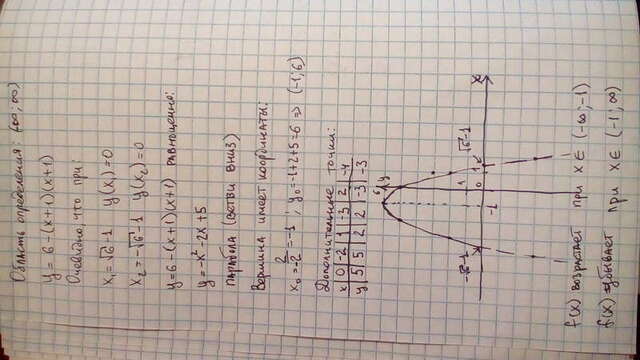 Область определения: (∞;∞)
y = 6 - (x+1)(x+1)
Очевидно, что при:
x₁ = √6 - 1 y(x₁) = 0
x₂ = -√6 - 1 y(x₂) = 0
y = 6 - (x+1)(x+1) равноценно:
y = -x² - 2x + 5
парабола (ветви вниз)
Вершина имеет координаты:
x₀ = 2/-2 = -1; y₀ = -1+2+5 = 6 => (-1; 6)
Дополнительные точки:
x 0 -2 1 -3 2 -4
y 5 5 2 2 -3 -3
6 y
1
-√6-1 -1 0 1 √6-1 x
f(x) возрастает при x ∈ (-∞; -1)
f(x) убывает при x ∈ (-1; ∞)